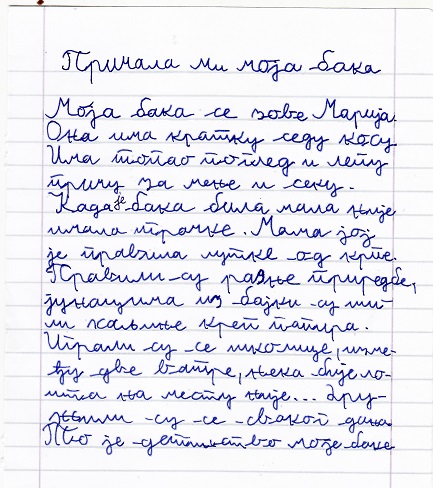 Причала ми моја бака
Моја бака се зове Марија.
Она има кратку седу косу
Има топао поглед и лепу
причу за мене и секу.
Када је бака била мала није
имала играчке. Мама јој
је правила лутке од крпе.
Правили су разне приредбе,
јунацима из бајки су ши-
ли хаљине креп папира.
Играли су се школице, изме-
ђу две ватре, нека бије ло-
пта на месту није... Дру-
жили су се сваког дана
То је детињство моје баке